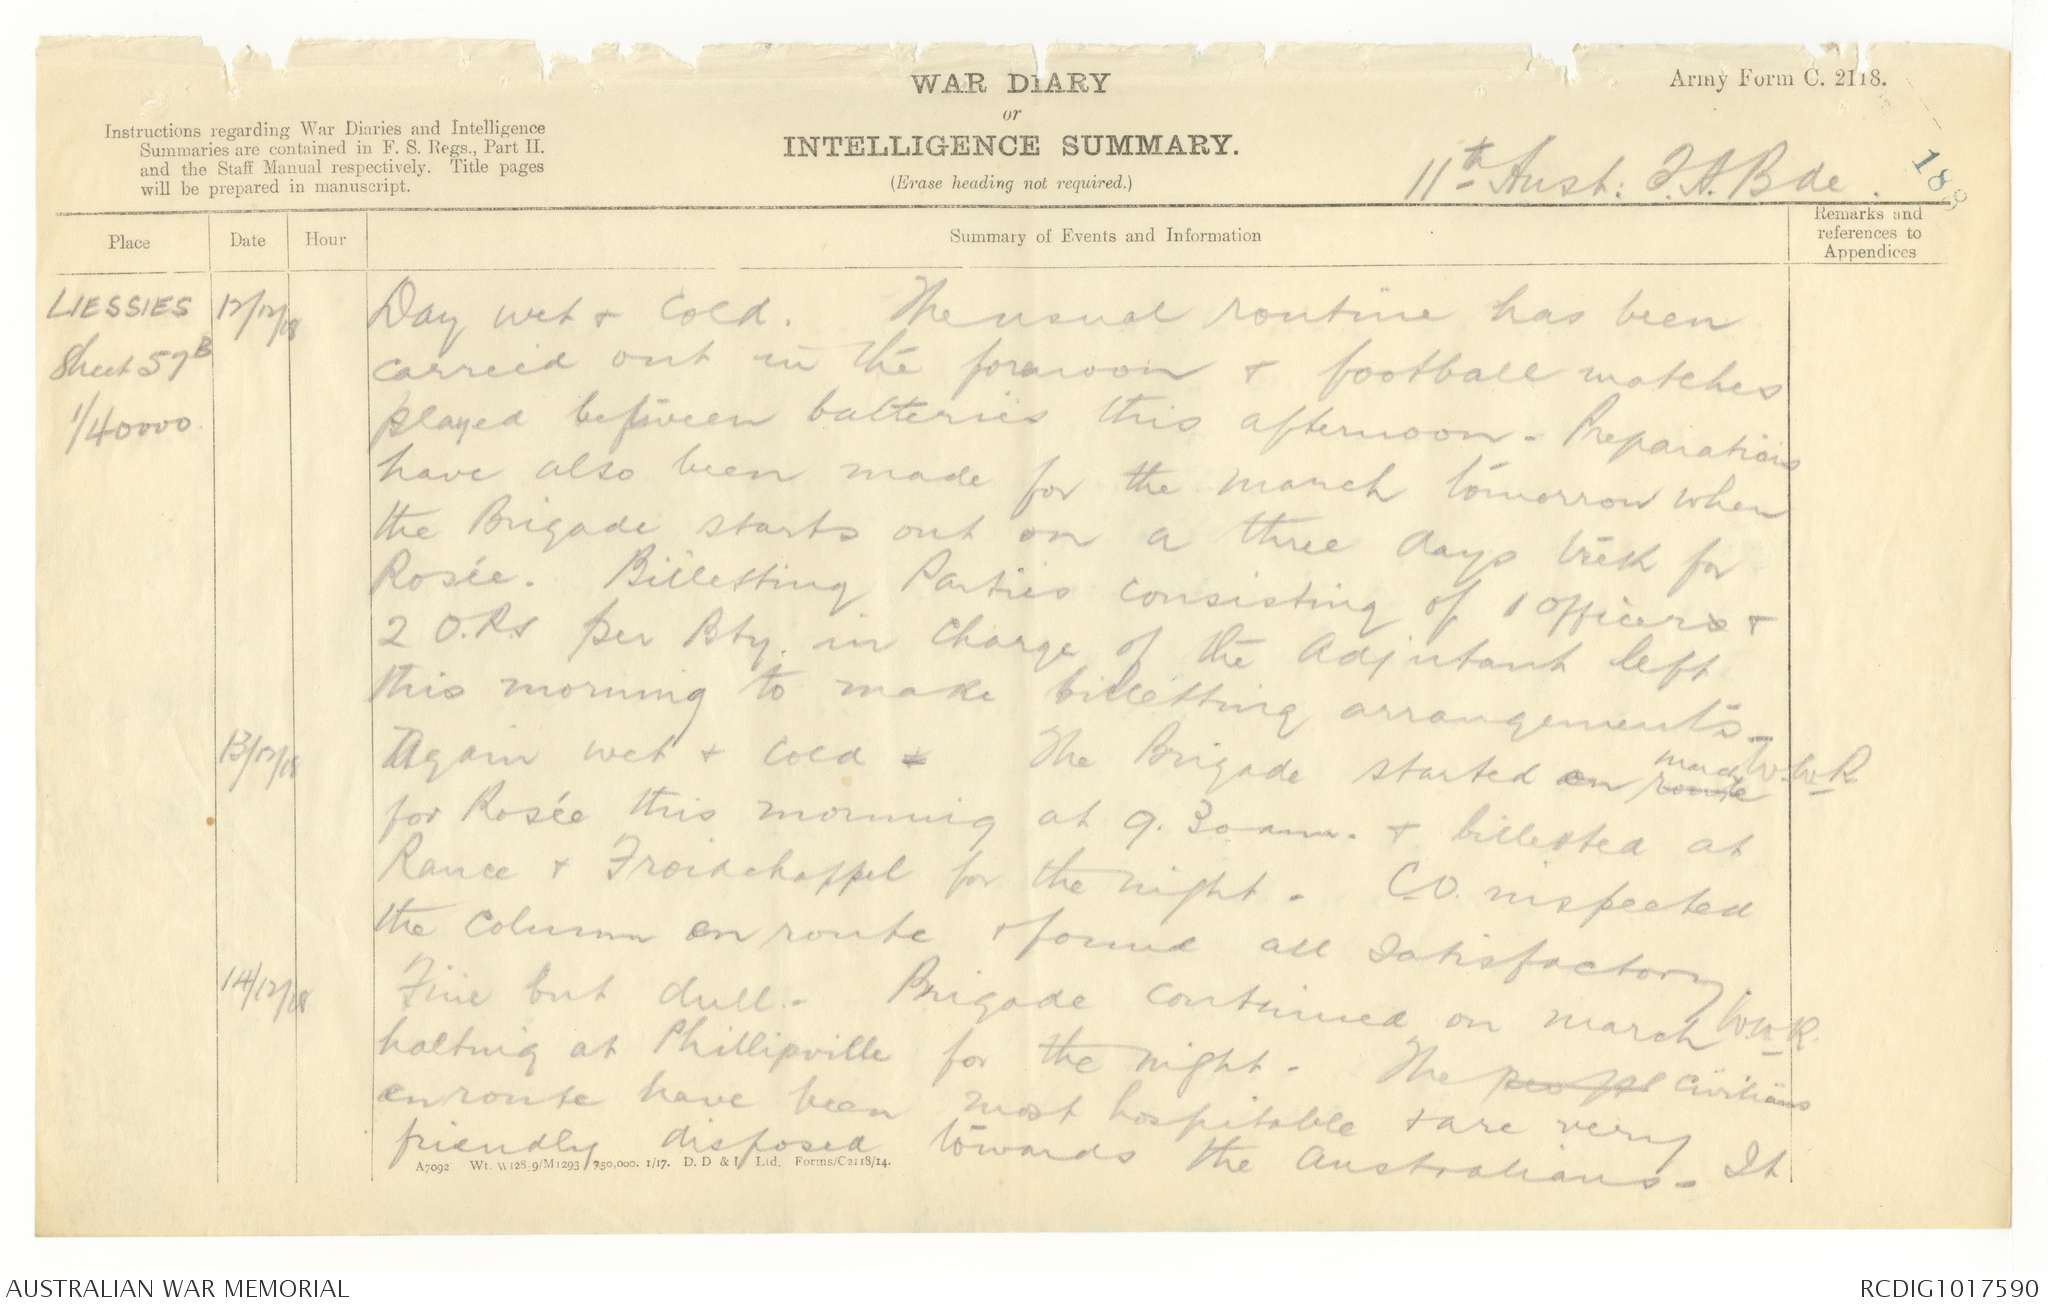 WAR DIARY
or
INTELLIGENCE SUMMARY.
(Erase heading not required.)
Army Form C. 2118.
Instructions regarding War Diaries and Intelligence
Summaries are contained in F. S. Regs., Part II.
and the Staff Manual respectively. Title pages
will be prepared in manuscript.
11th Aust: F.A. Bde.
189
Place
Date
Hour
Summary of Events and Information
Remarks and
references to
Appendices
LIESSIES
Sheet 57B
1/40000
12/12/18
Day wet & cold. The usual routine has been
carried out in the forenoon & football matches
played between batteries this afternoon. Preparations
have also been made for the march tomorrow when
the Brigade starts out on a three days trek for
Rosée. Billetting Parties consisting of 1 Officers &
2 O.Rs per Bty. in charge of the Adjutant left
this morning to make billetting arrangements.
W.W.R.
13/12/18
Again wet & cold & The Brigade started on route march
for Rosée this morning at 9.30 am. & billetted at
Rance & Froidchappel for the night. C.O. inspected
the column en route & found all satisfactory.
W.W.R.
14/12/18
Fine but dull. Brigade continued on march
halting at Phillipville for the night. The peopl civilians
enroute have been most hospitable & are very
friendly disposed towards the Australians. It
A7092 Wt. W128 9/M1293 750,000. 1/17. D. D & L. Ltd. Forms/C2118/14.
AUSTRALIAN WAR MEMORIAL
RCDIG1017590